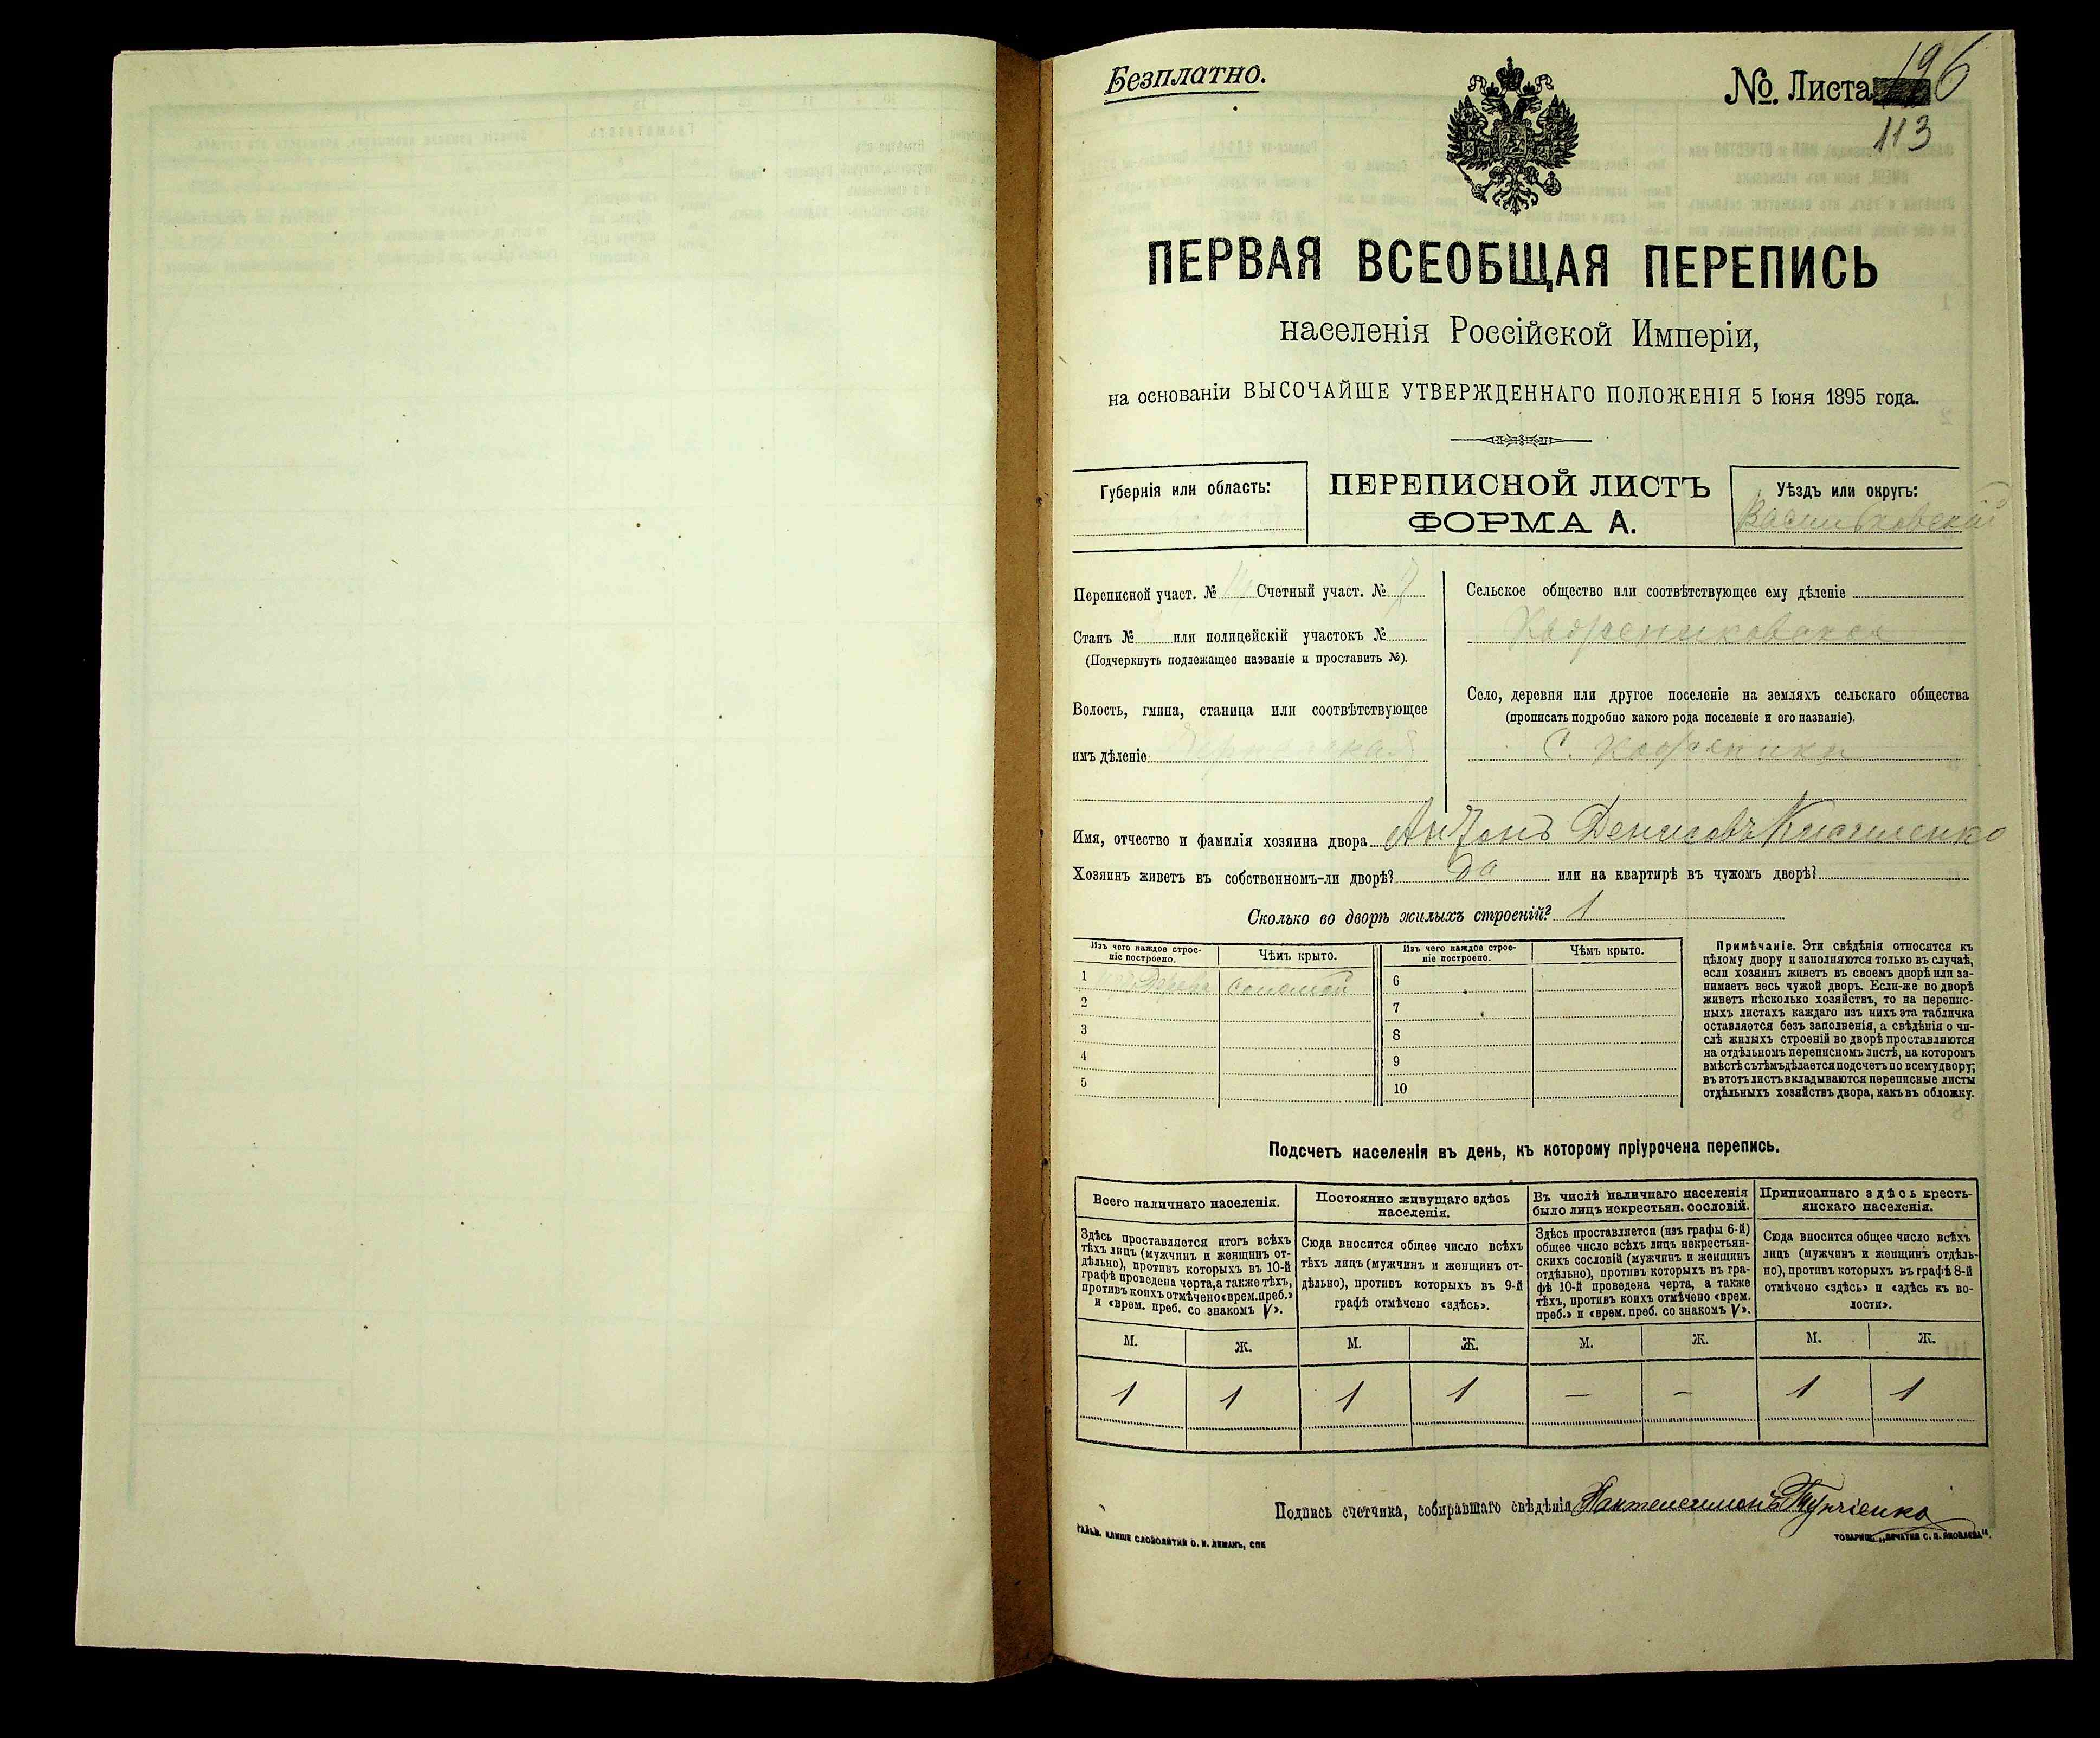 Безплатно.
№. Листа 196
113
ПЕРВАЯ ВСЕОБЩАЯ ПЕРЕПИСЬ
населенія Россійской Имперіи,
на основаніи ВЫСОЧАЙШЕ УТВЕРЖДЕННАГО ПОЛОЖЕНІЯ 5 Іюня 1895 года.
Губернія или область:
ПЕРЕПИСНОЙ ЛИСТЪ
ФОРМА А.
Уѣздъ или округъ:
Васильковскій
Переписной участ. № Счетный участ. № 7
Станъ № или полицейскій участокъ №
(Подчеркнуть подлежащее названіе и проставить №).
Волость, гмина, станица или соотвѣтствующее
имъ дѣленіе
Сельское общество или соотвѣтствующее ему дѣленіе
Село, деревня или другое поселеніе на земляхъ сельскаго общества
(прописать подробно какого рода поселеніе и его названіе).
С.
Имя, отчество и фамилія хозяина двора Антонъ Денисовъ
Хозяинъ живетъ въ собственномъ-ли дворѣ? да или на квартирѣ въ чужомъ дворѣ?
Сколько во дворѣ жилыхъ строеній? 1
Изъ чего каждое строе-
ніе построено.
Чѣмъ крыто.
Изъ чего каждое строе-
ніе построено.
Чѣмъ крыто.
1 дерева соломой
2
3
4
5
6
7
8
9
10
Примѣчаніе. Эти свѣдѣнія относятся къ
цѣлому двору и заполняются только въ случаѣ,
если хозяинъ живетъ въ своемъ дворѣ или за-
нимаетъ весь чужой дворъ. Если-же во дворѣ
живетъ нѣсколько хозяйствъ, то на перепис-
ныхъ листахъ каждаго изъ нихъ эта табличка
оставляется безъ заполненія, а свѣдѣнія о чи-
слѣ жилыхъ строеній во дворѣ проставляются
на отдѣльномъ переписномъ листѣ, на которомъ
вмѣстѣ съ тѣмъ дѣлается подсчетъ по всему двору;
въ этотъ листъ вкладываются переписные листы
отдѣльныхъ хозяйствъ двора, какъ въ обложку.
Подсчетъ населенія въ день, къ которому пріурочена перепись.
Всего наличнаго населенія.
Здѣсь проставляется итогъ всѣхъ
тѣхъ лицъ (мужчинъ и женщинъ от-
дѣльно), противъ которыхъ въ 10-й
графѣ проведена черта, а также тѣхъ,
противъ коихъ отмѣчено «врем. преб.»
и «врем. преб. со знакомъ V».
Постоянно живущаго здѣсь
населенія.
Сюда вносится общее число всѣхъ
тѣхъ лицъ (мужчинъ и женщинъ от-
дѣльно), противъ которыхъ въ 9-й
графѣ отмѣчено «здѣсь».
Въ числѣ наличнаго населенія
было лицъ некрестьян. сословій.
Здѣсь проставляется (изъ графы 6-й)
общее число всѣхъ лицъ некрестьян-
скихъ сословій (мужчинъ и женщинъ
отдѣльно), противъ которыхъ въ гра-
фѣ 10-й проведена черта, а также
тѣхъ, противъ коихъ отмѣчено «врем.
преб.» и «врем. преб. со знакомъ V».
Приписаннаго здѣсь кресть-
янскаго населенія.
Сюда вносится общее число всѣхъ
лицъ (мужчинъ и женщинъ отдѣль-
но), противъ которыхъ въ графѣ 8-й
отмѣчено «здѣсь» и «здѣсь къ во-
лости».
М. Ж. М. Ж. М. Ж. М. Ж.
1 1 1 1 — — 1 1
Подпись счетчика, собиравшаго свѣдѣнія Пантелеимонъ
ГАЛЬВ. КЛИШЕ СЛОВОЛИТНИ О. И. ЛЕМАНЪ, СПБ
ТОВАРИЩ. „ПЕЧАТНЯ С. П. ЯКОВЛЕВА".